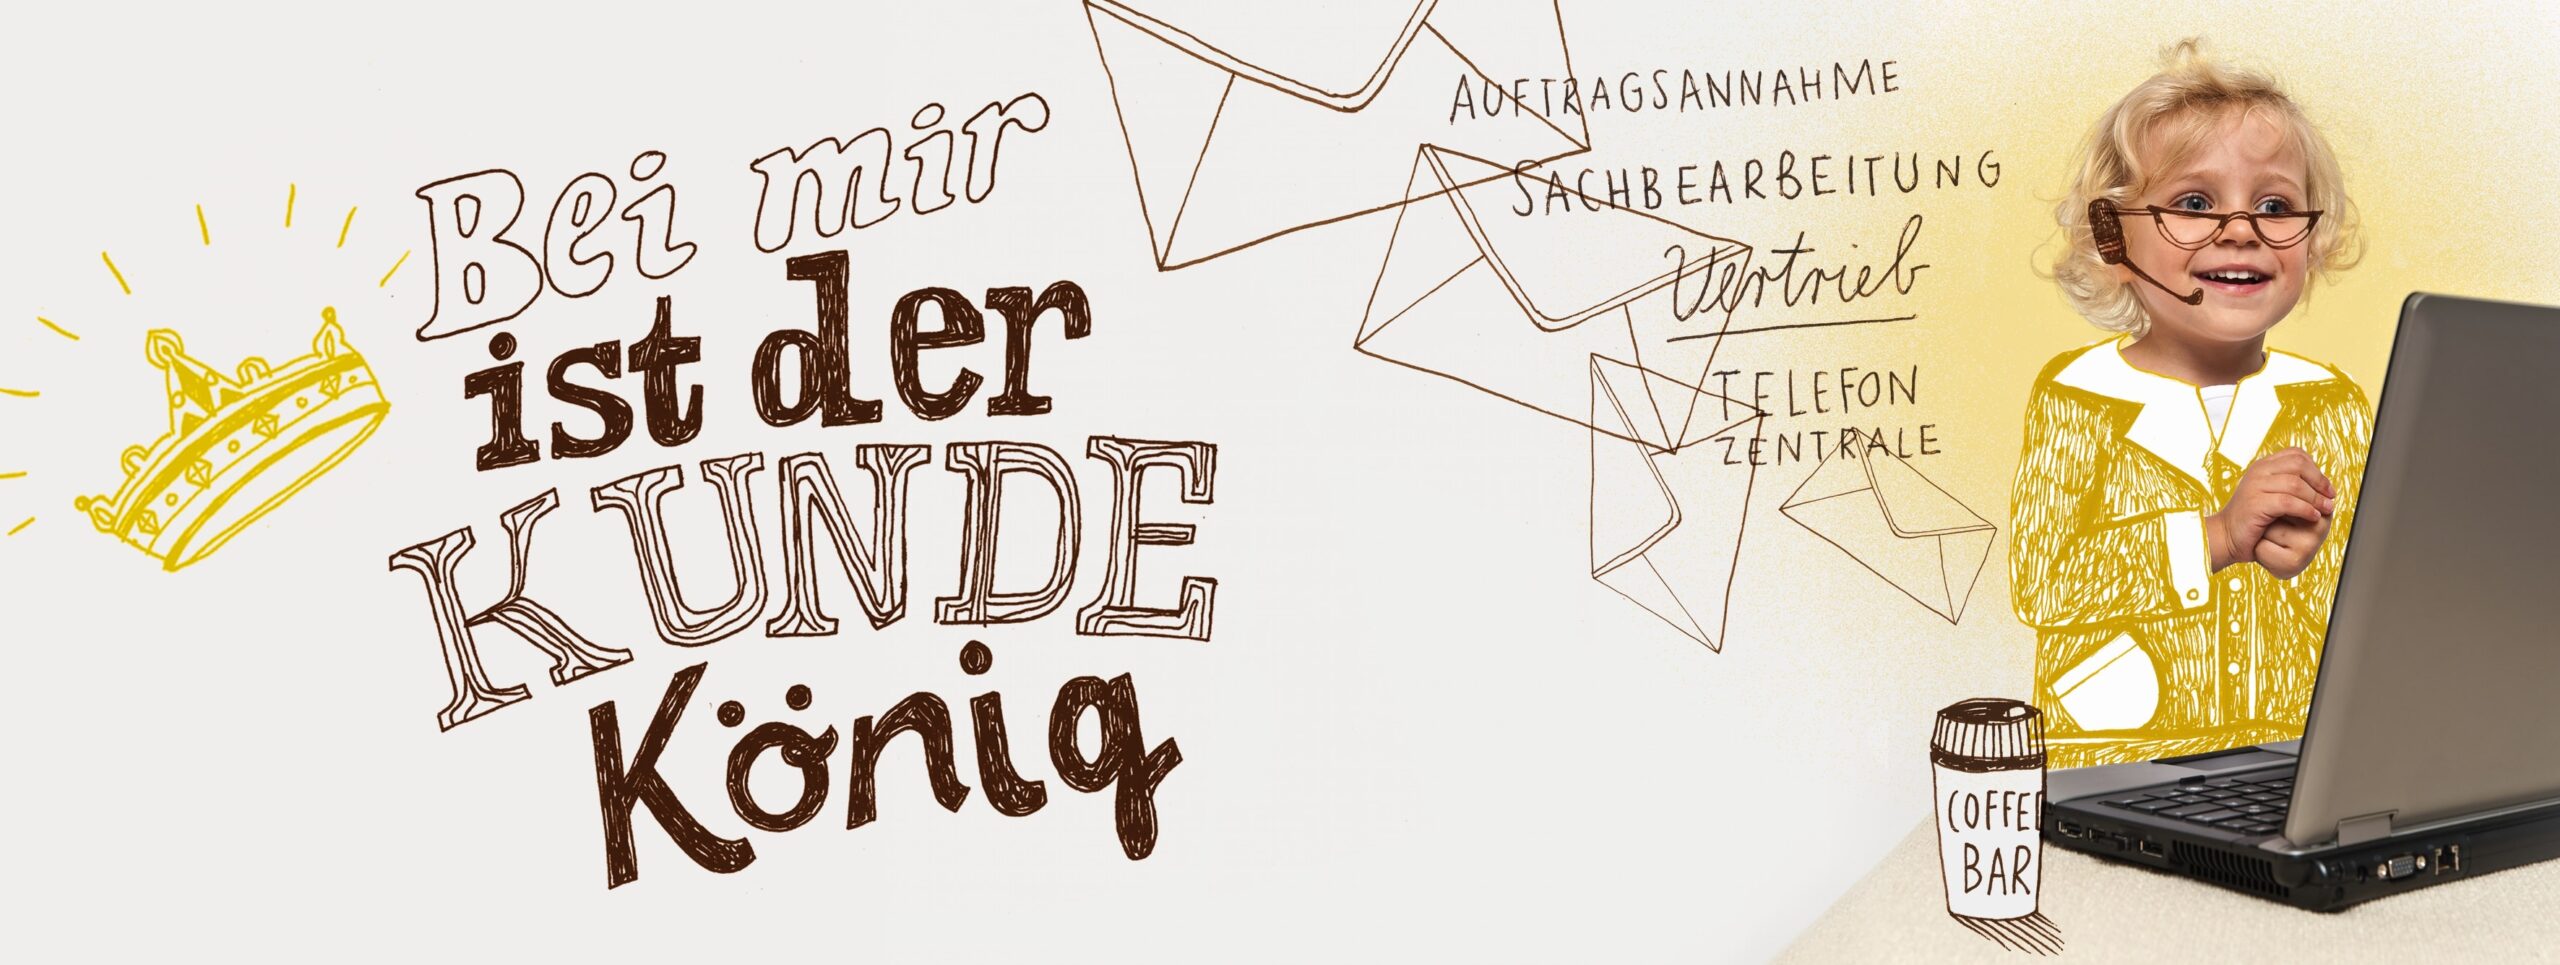 Bei mir
ist der
KUNDE
König
AUFTRAGSANNAHME
SACHBEARBEITUNG
Vertrieb
TELEFON
ZENTRALE
COFFEE
BAR